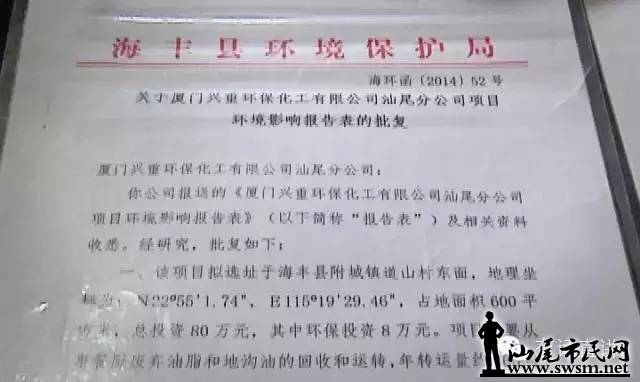 海丰县环境保护局
海环函〔2014〕52号
关于厦门兴重环保化工有限公司汕尾分公司项目
环境影响报告表的批复
厦门兴重环保化工有限公司汕尾分公司：
你公司报送的《厦门兴重环保化工有限公司汕尾分公司
项目环境影响报告表》（以下简称“报告表”）及相关资料
收悉。经研究，批复如下：
一、该项目拟选址于海丰县附城镇道山村东面，地理坐
标为：N22º55'1.74"，E115º19'29.46"，占地面积600平
方米，总投资80万元，其中环保投资8万元。项目主要从
事餐厨废弃油脂和地沟油的回收和运转，年转运量
汕尾市民网
www.swsm.net